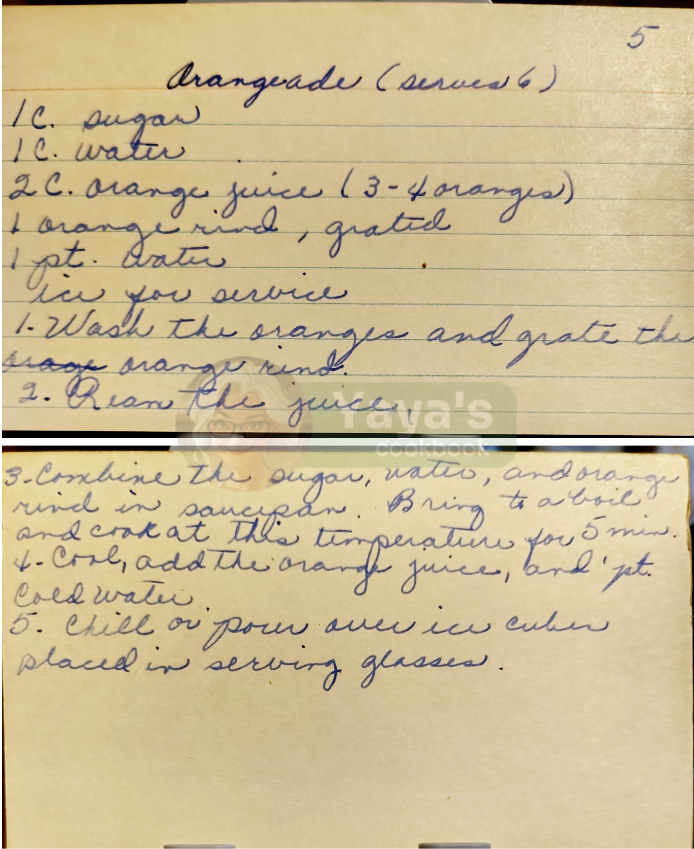 5
Orangeade (serves 6)
1 C. sugar
1 C. water
2 C. orange juice (3-4 oranges)
1 orange rind, grated
1 pt. water
ice for service
1- Wash the oranges and grate the
orage orange rind.
2. Ream the juice.
Yaya's
cookbook
3- Combine the sugar, water, and orange
rind in saucepan. Bring to a boil
and cook at this temperature for 5 min.
4- Cool, add the orange juice, and 1 pt.
Cold water.
5. Chill or pour over ice cubes
placed in serving glasses.